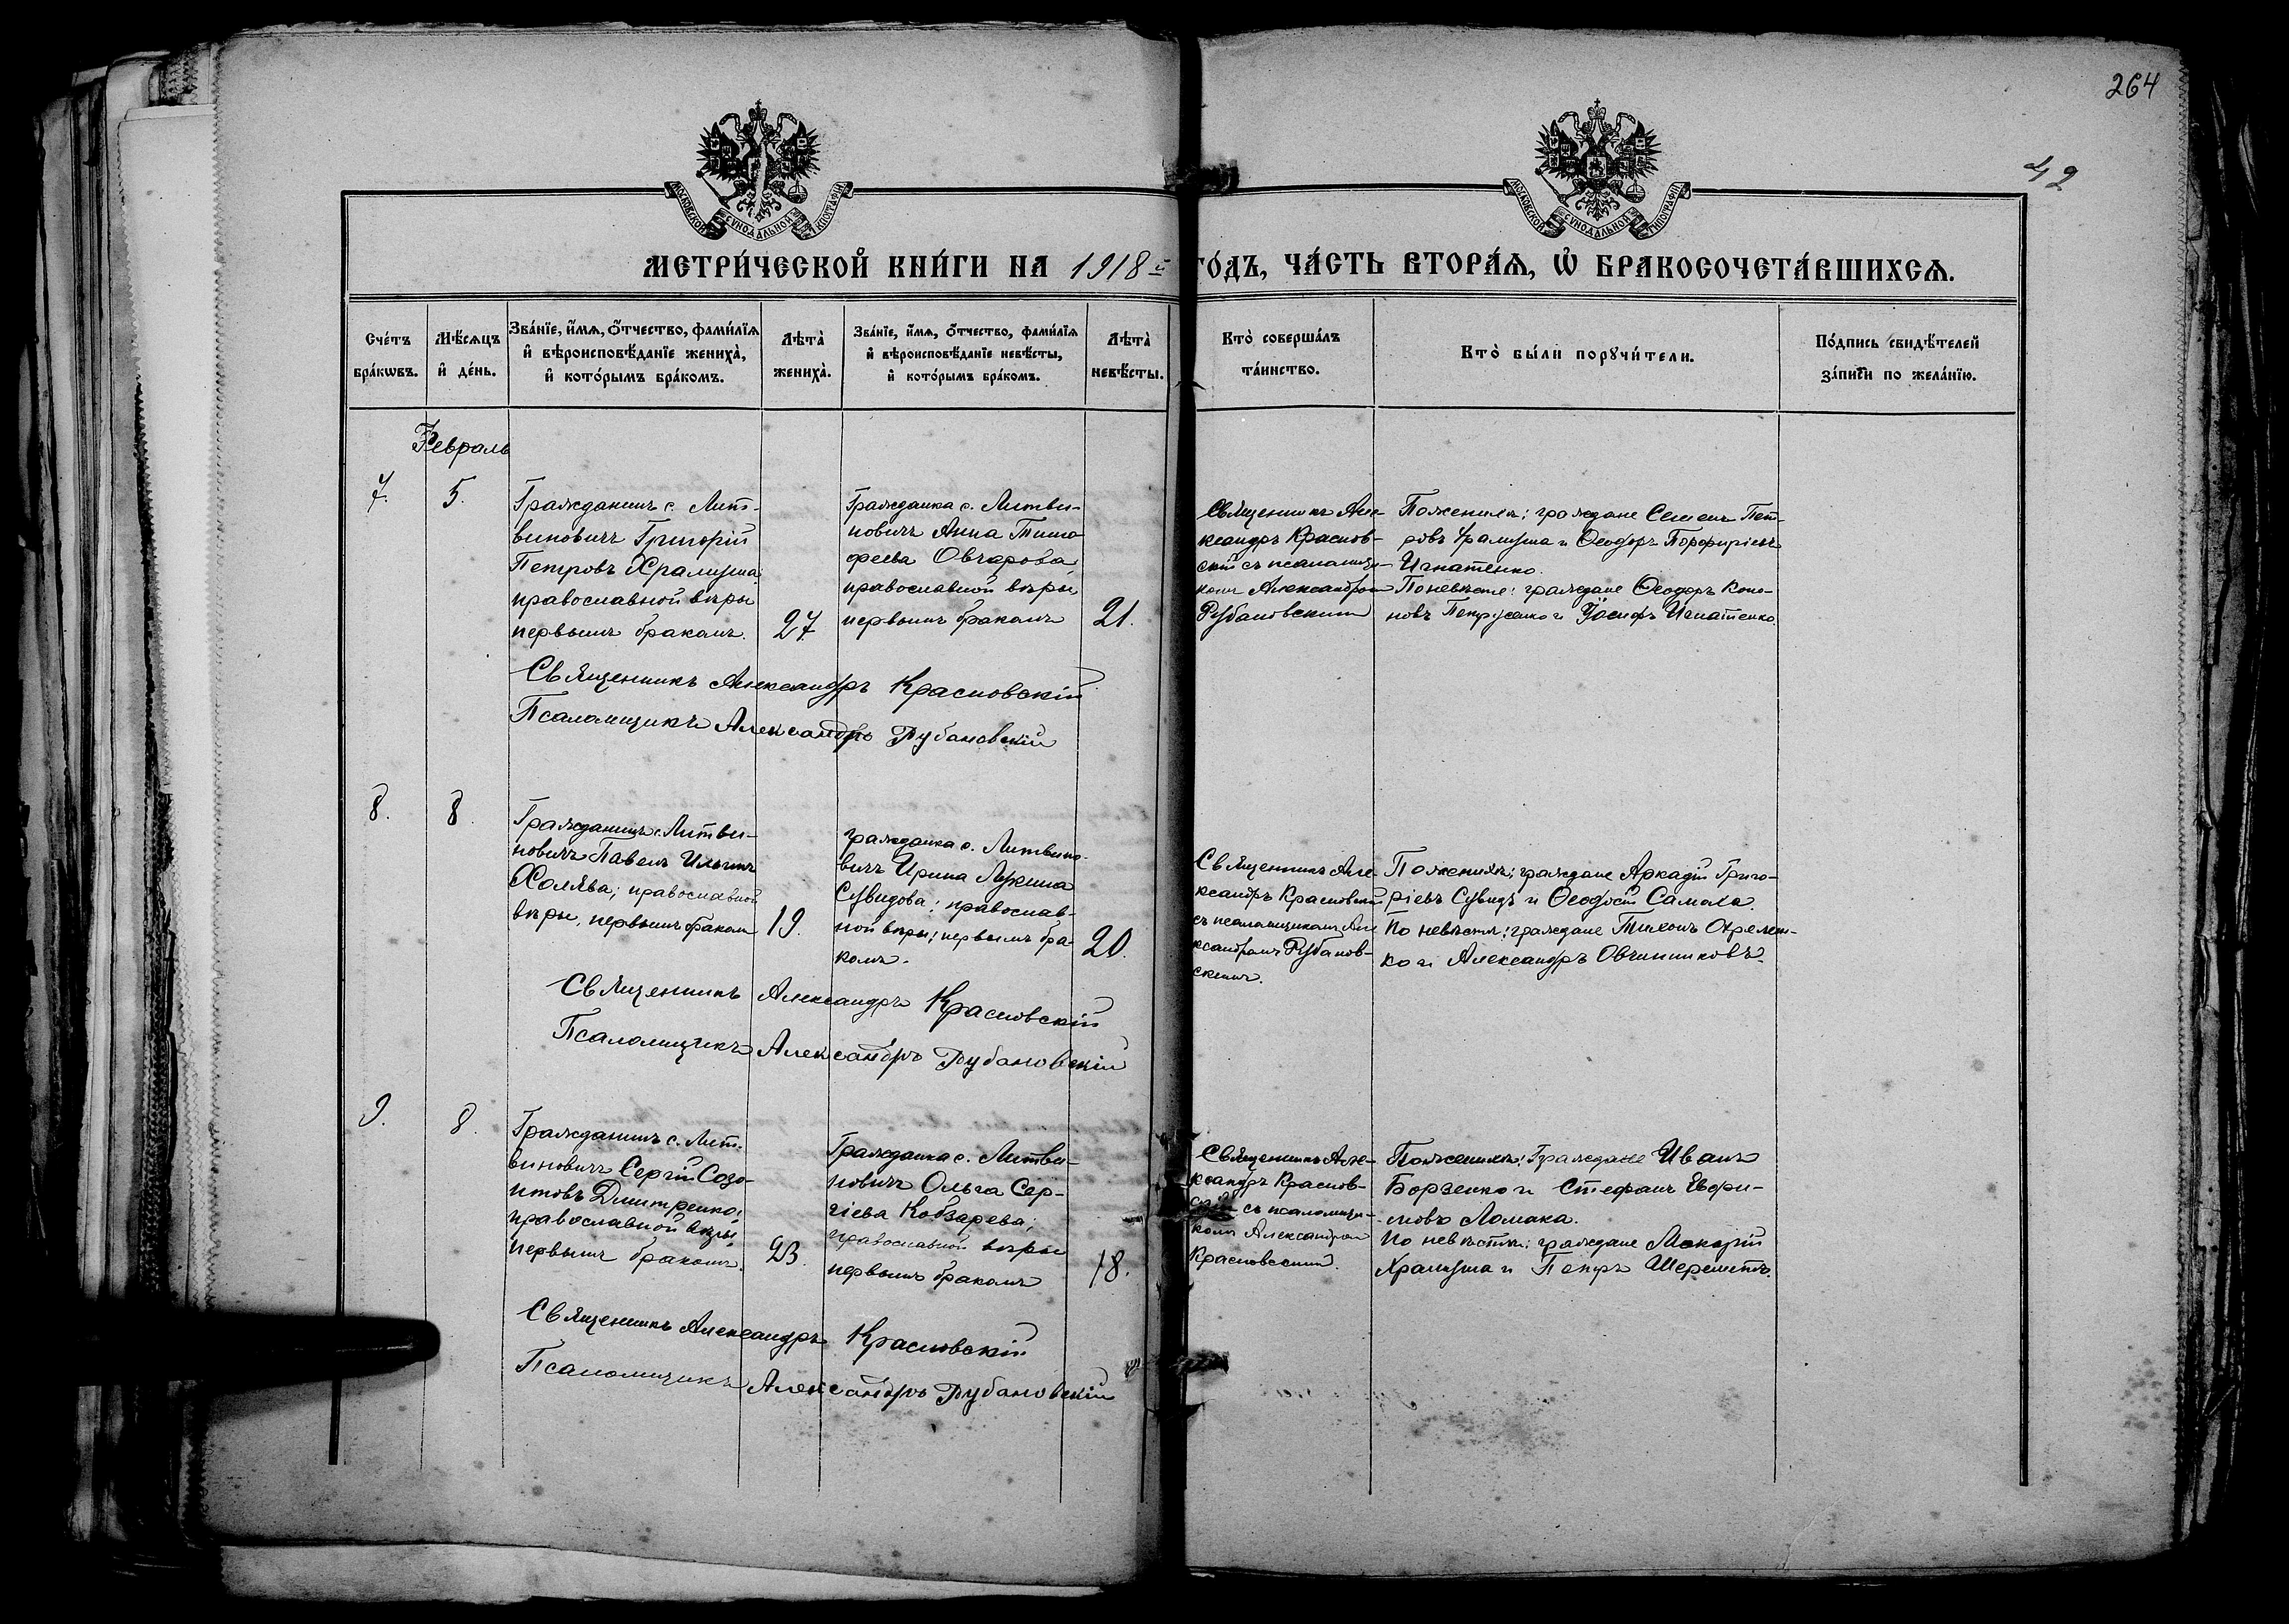 264
42
МОСКОВСКОЙ СУНОДАЛЬНОЙ ТИПОГРАФІИ
МОСКОВСКОЙ СУНОДАЛЬНОЙ ТИПОГРАФІИ
МЕТРИ́ЧЕСКОЙ КНИ́ГИ НА 1918 й ГО́ДЪ, ЧА́СТЬ ВТОРА́Я, Ѡ҆ БРАКОСОЧЕТА́ВШИХСѦ.
Сче́тъ
бра́кѡвъ.
Мѣ́сѧцъ
и҆ де́нь.
Зва́нїе, и҆́мѧ, ѻ҆́тчество, фами́лїѧ
и҆ вѣроисповѣ́данїе жениха̀,
и҆ кото́рымъ бра́комъ.
Лѣта̀
жениха̀.
Зва́нїе, и҆́мѧ, ѻ҆́тчество, фами́лїѧ
и҆ вѣроисповѣ́данїе невѣ́сты,
и҆ кото́рымъ бра́комъ.
Лѣта̀
невѣ́сты.
Кто̀ соверша́лъ
та́инство.
Кто̀ бы́ли порꙋчи́тели.
По́дпись свидѣ́телей
за́писи по жела́нїю.
Февраль
7.
5.
Гражданинъ с. Лит-
виновичъ Григорій
Петровъ Храпуша
православной вѣры
первымъ бракомъ.
27
Гражданка с. Литви-
новичъ Анна Тимо
феева Овчарова,
православной вѣры
первымъ бракомъ
21.
Священникъ Але-
ксандръ Краснов-
скій съ псаломщи-
комъ Александром
Рубановскимъ
По женихѣ: граждане Семенъ Пет-
ровъ Храпуша и Ѳеодоръ Порфиріевъ
Игнатенко.
По невѣсте: граждане Ѳеодоръ Коно-
новъ Петрусенко и Іосифъ Игнатенко.
Священникъ Александръ Красновскій
Псаломщикъ Александръ Рубановскій
8.
8.
Гражданинъ с. Литви-
новичъ Павелъ Ильинъ
Холява; православной
вѣры, первымъ браком
19.
гражданка с. Литвино-
вичъ Ирина Лукина
Сувидова; православ-
ной вѣры; первымъ бра-
комъ.
20.
Священникъ Але-
ксандръ Красновскій
съ псаломщикомъ Але
ксандромъ Рубанов-
скимъ.
По женихѣ; граждане Аркадій Григо-
ріевъ Сувидъ и Ѳеодосій Самоха.
По невѣстѣ: граждане Тихонъ
ко и Александръ Овчинниковъ.
Священникъ Александръ Красновскій
Псаломщикъ Александръ Рубановскій
9.
8.
Гражданинъ с. Лит-
виновичъ Сергій Созо-
нтовъ Дмитренко;
православной вѣры
первымъ бракомъ.
23.
Гражданка с. Литви-
новичъ Ольга Сер-
гіева Кобзарева;
православной вѣры
первымъ бракомъ
18.
Священникъ Але-
ксандръ Краснов-
скій съ псаломщи-
комъ Александром
Красновскимъ.
По женихѣ: Граждане Иванъ
Борзенко и Стефанъ Евфи-
мовъ Ломака.
По невѣстѣ: граждане Макарій
Храпуша и Петръ Шереметъ.
Священникъ Александръ Красновскій
Псаломщикъ Александръ Рубановскій